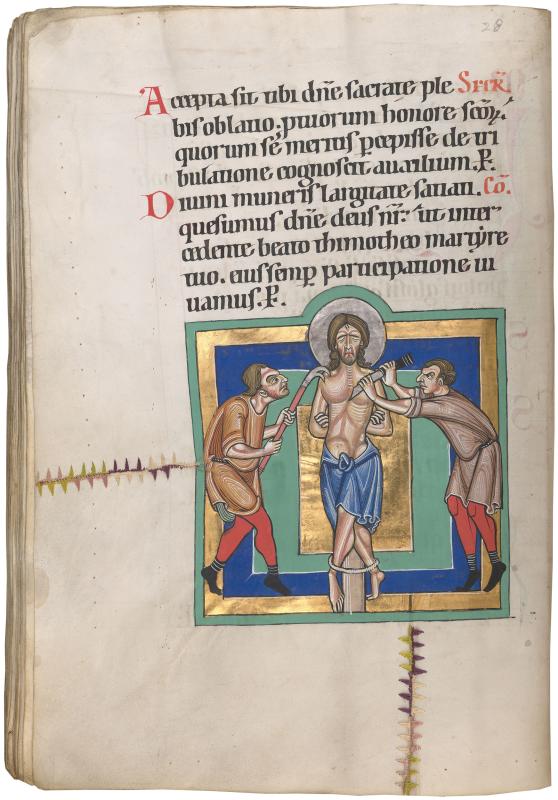 28
Accepta sit tibi dn̄e sacrate ple Secr̄.
bis oblatio, ptuorum honore scōꝝ.
quorum se meritis p̄cepisse de tri
bulatione cognoscit auxilium. P̄.
Diuini muneris largitate satiati. Cō.
quesumus dn̄e deus nr̄: ut inter
cedente beato thimotheo martyre
tuo. eius semp̄ participatione ui
uamus. P̄.